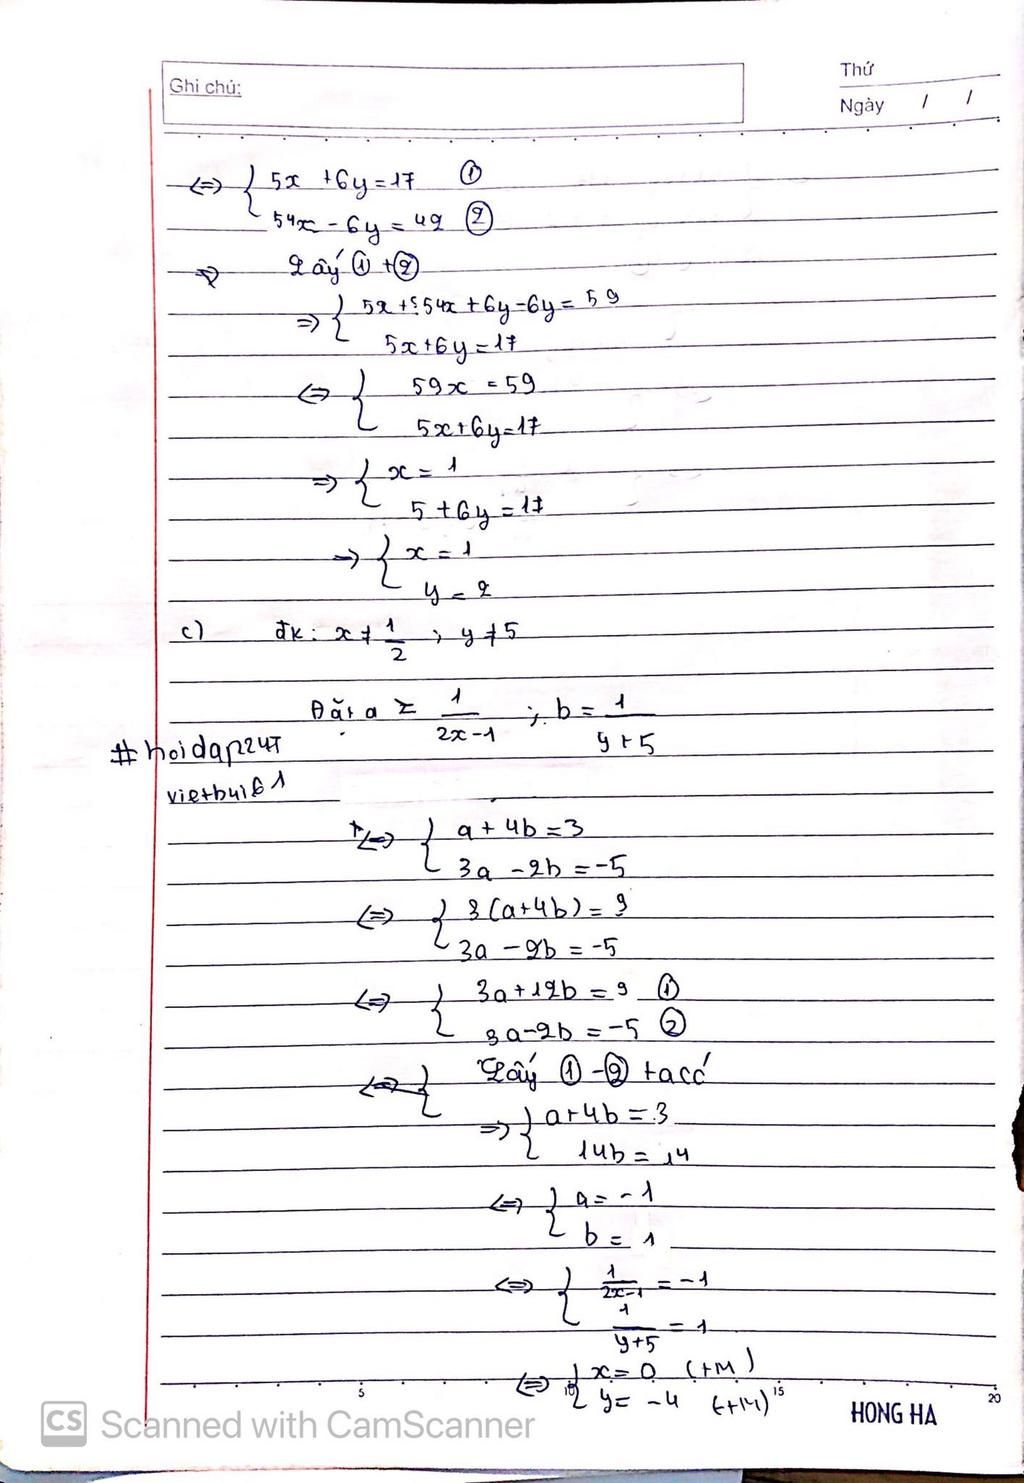 Ghi chú:
Thứ
Ngày / /
<=> { 5x + 6y = 17 ①
54x - 6y = 42 ②
=> Lấy ① + ②
=> { 5x + 54x + 6y - 6y = 59
5x + 6y = 17
<=> { 59x = 59
5x + 6y = 17
=> { x = 1
5 + 6y = 17
=> { x = 1
y = 2
c) đk: x ≠ 1/2 ; y ≠ 5
Đặt a = 1/(2x-1) ; b = 1/(y+5)
#hoidap247
vietbui61
<=> { a + 4b = 3
3a - 2b = -5
<=> { 3(a+4b) = 9
3a - 2b = -5
<=> { 3a + 12b = 9 ①
3a - 2b = -5 ②
<=> { Lấy ① - ② ta có
=> { a + 4b = 3
14b = 14
<=> { a = -1
b = 1
<=> { 1/(2x-1) = -1
1/(y+5) = 1
<=> { x = 0 (tM)
y = -4 (tM)
5 10 15 20
HONG HA
CS Scanned with CamScanner